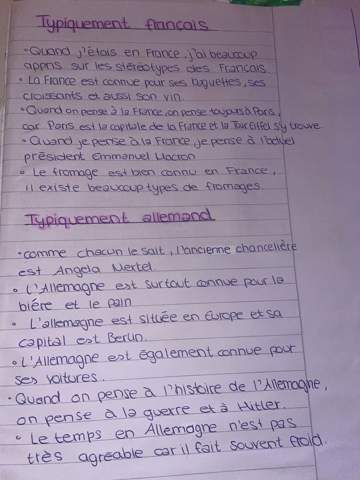 Typiquement français
• Quand j'étais en France, j'ai beaucoup
appris sur les stéréotypes des Francais
• La France est connue pour ses baguettes, ses
croissants et aussi son vin.
• Quand on pense à la France, on pense toujours à Paris,
car Paris est la capitale de la France et la Tour Eiffel s'y trouve
• Quand je pense à la France, je pense à l'actuel
président Emmanuel Macron
• Le fromage est bien connu en France,
il existe beaucoup types de fromages.
Typiquement allemand
• comme chacun le sait, l'ancienne chancelière
est Angela Merkel
• L'Allemagne est surtout connue pour la
bière et le pain
• L'allemagne est située en Europe et sa
capital est Berlin.
• L'Allemagne est également connue pour
ses voitures.
• Quand on pense à l'histoire de l'Allemagne,
on pense à la guerre et à Hitler.
• Le temps en Allemagne n'est pas
très agréable car il fait souvent froid.